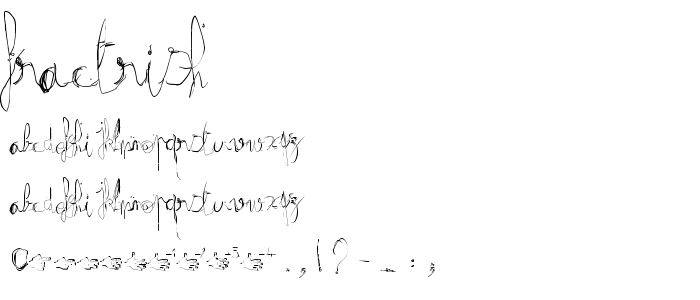 fractrish
abcdefghi jklmnopqrstuvwxyz
abcdefghi jklmnopqrstuvwxyz
. , ! ? - _ : ;